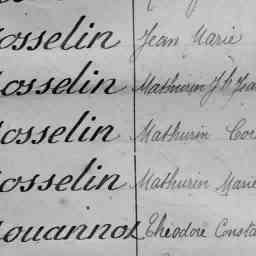 osselin Jean Marie
osselin Mathurin Jh Jea
osselin Mathurin Cor
osselin Mathurin Marie
ouannot Théodore Consta